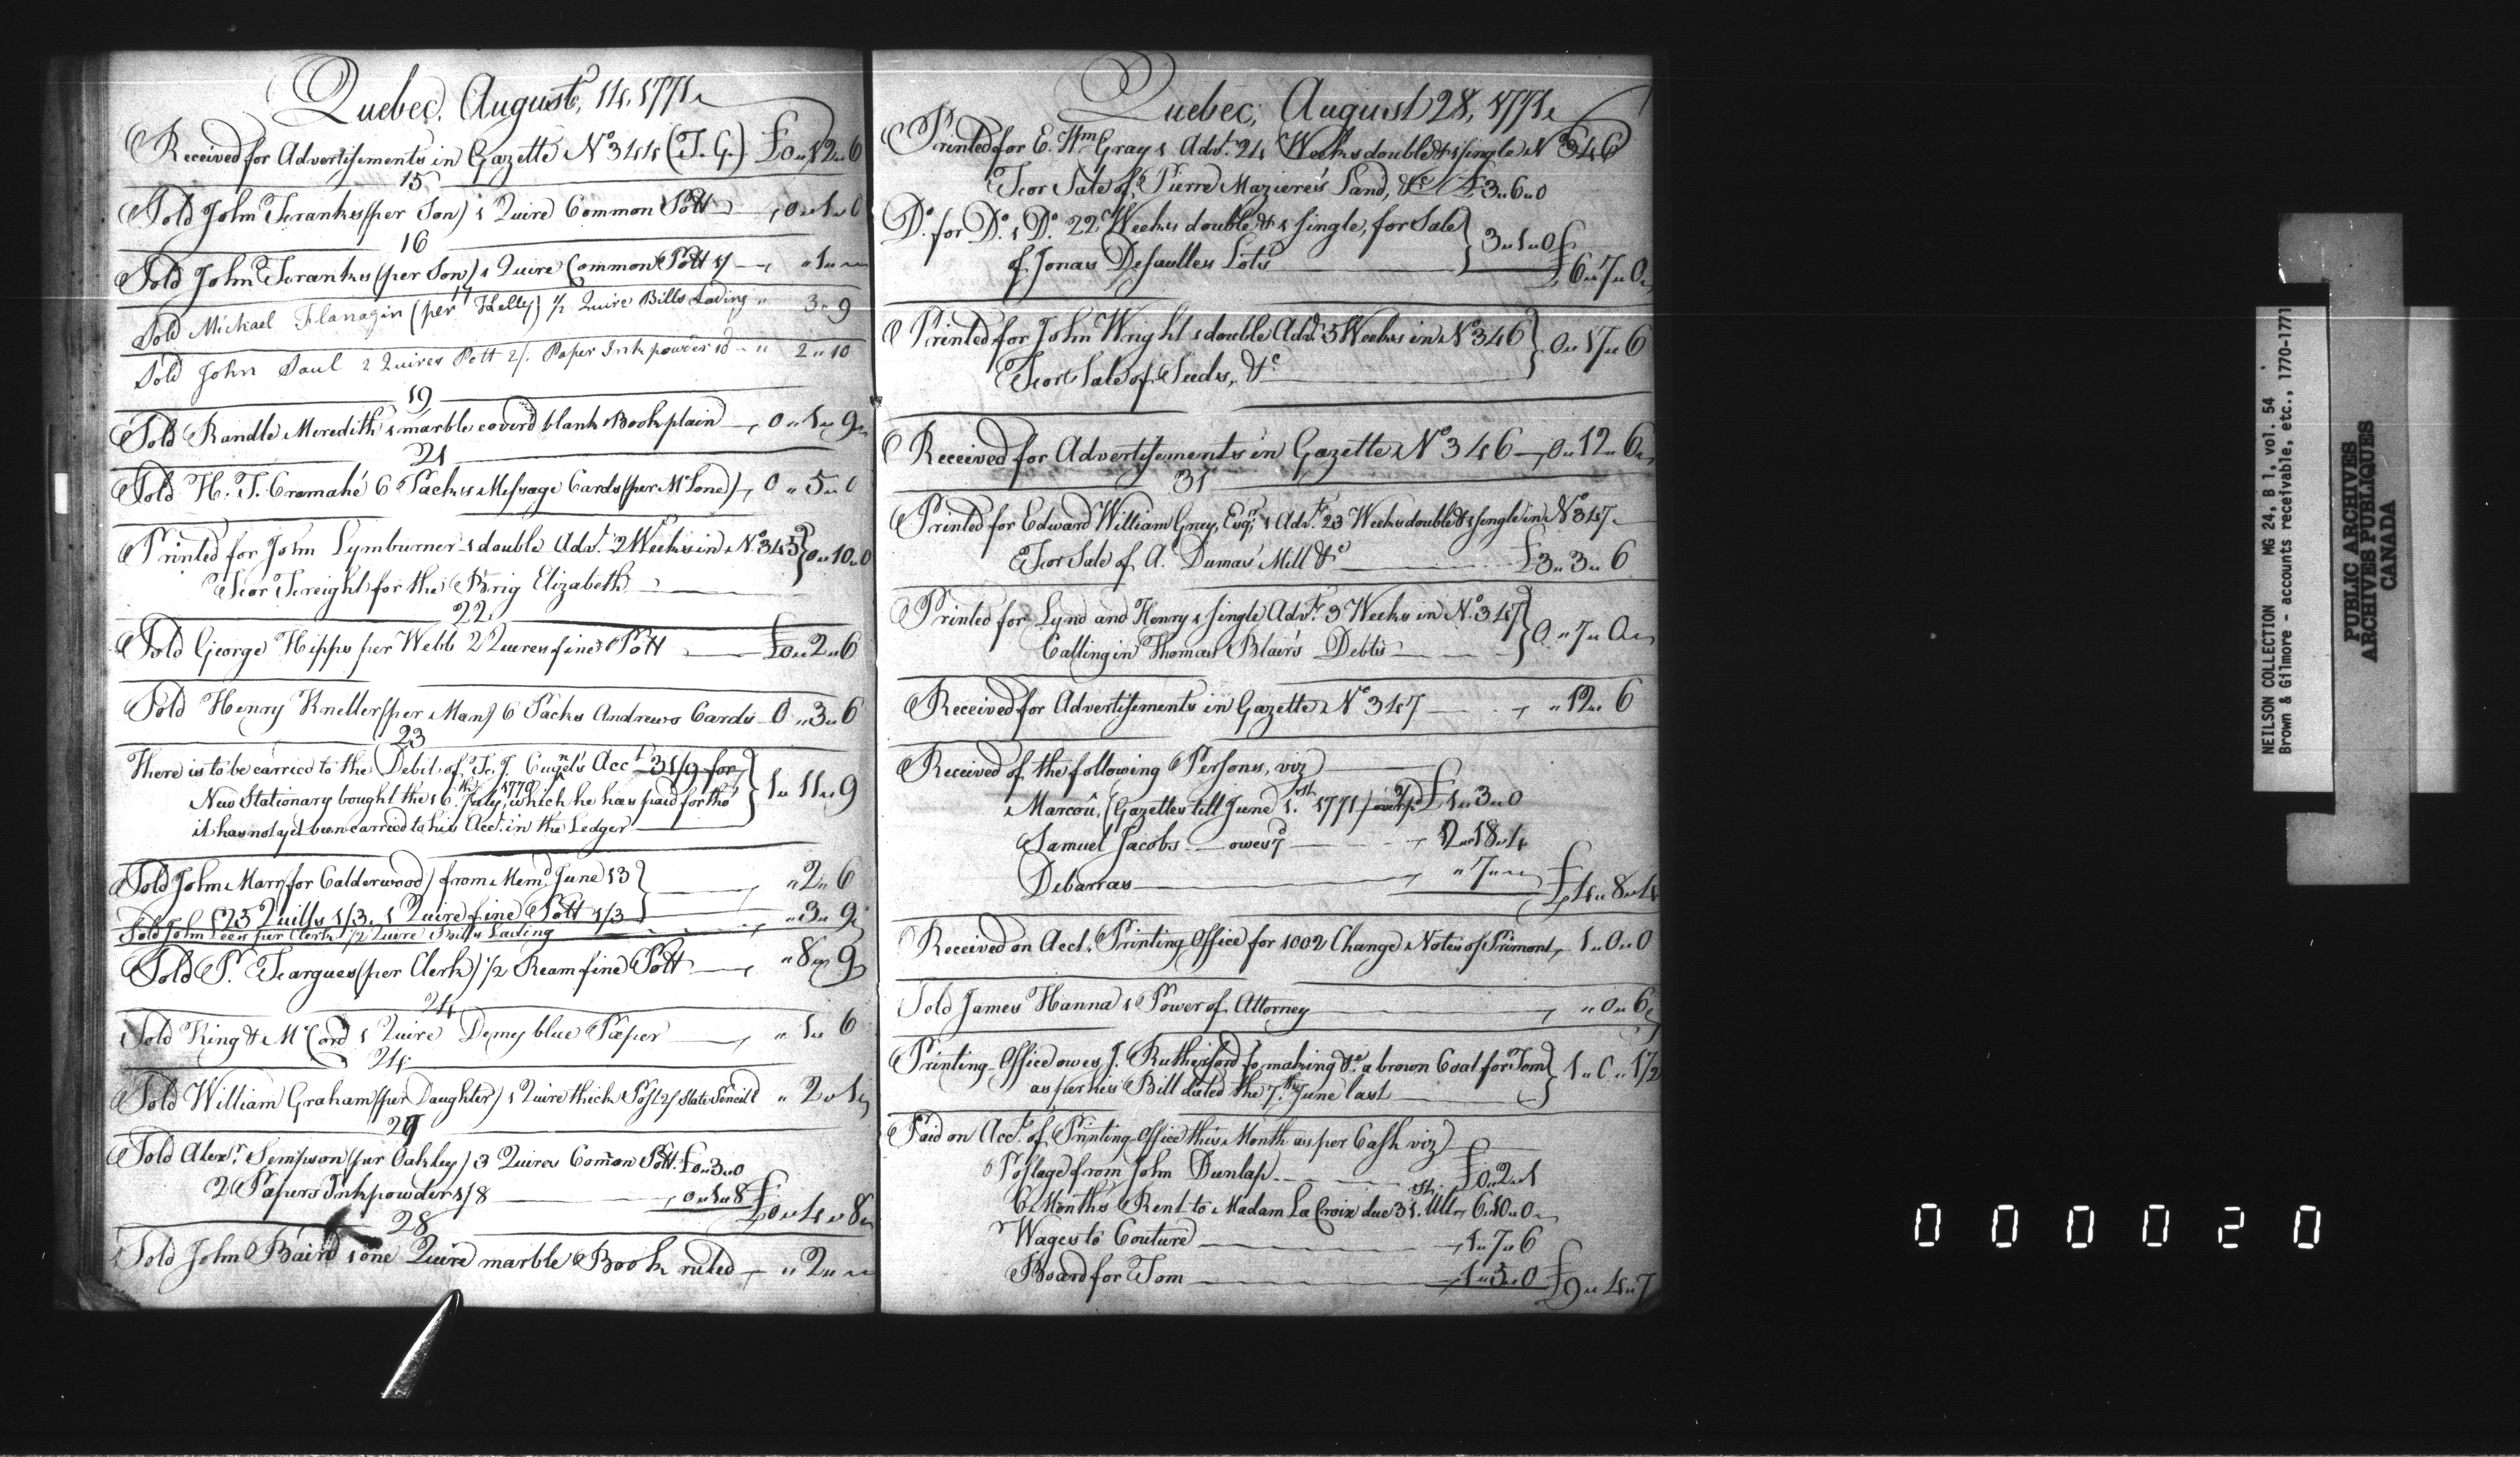 Quebec, August, 14, 1771.
Received for Advertisements in Gazette No 344 (T. G.) £0„12„6
15
Sold John Franks (per Son) 1 Quire Common Pott 0„1„0
16
Sold John Franks (per Son) 1 Quire Common Pott 1/ „1„
17
Sold Michael Flanagin (per Kelly) ½ Quire Bills Lading „ 3„9
Sold John Saul 2 Quires Pott 2/. Paper Ink powder 10 „ 2„10
19
Sold Randle Meredith 1 marble coverd blank Book plain 0„1„9
21
Sold H. T. Cramahé 6 Packs Message Cards (per McLone) 0„5„0
Printed for John Lymburner 1 double Advt. 2 Weeks in No. 345 } 0„10„0
For Freight for the Brig Elizabeth
22
Sold George Hipps per Webb 2 Quires fine Pott £0„2„6
Sold Henry Kneller (per Man) 6 Packs Andrews Cards 0„3„6
23
There is to be carried to the Debit of Fr. J. Cugnet's Acct 31/9 for
New Stationary bought the 16th July, 1770, which he has paid for tho' } 1„11„9
it has not yet been carried to his Acct. in the Ledger
Sold John Marr (for Calderwood) from Memd June 13 } „2„6
25 Quills 1/3. 1 Quire fine Pott 1/3
Sold John Lees per Clerk ½ Quire Bills Lading „3„9
Sold Pr. Fargues (per Clerk) ½ Ream fine Pott „8„9
24
Sold King & McCord 1 Quire Demy blue Paper „1„6
24
Sold William Graham (per Daughter) 1 Quire thick Post 2/ Slate Pencil 1 „2„1
27
Sold Alexr. Simpson (per Oakley) 3 Quires Comon Pott. £0„3„0
2 Papers Inkpowder 1/8 0„1„8 £0„4„8
28
Sold John Baird 1 one Quire marble Book ruled „2„
Quebec, August 28, 1771.
Printed for E. Wm Gray 1 Advt. 24 Weeks double & 1 single No 346
For Sale of Pierre Maziere's Land, &c £3„6„0
Do. for Do. 1 Do. 22 Weeks double & 1 single, for Sale } 3„1„0
of Jonas Desaulles Lots £6„7„0
Printed for John Wright 1 double Advt. 5 Weeks in No 346 } 0„17„6
For Sale of Seeds, &c
Received for Advertisements in Gazette No 346 0„12„6
31
Printed for Edward William Gray, Esqr. 1 Advt. 23 Weeks double & 1 single in No 347
For Sale of A. Dumas' Mill &c £3„3„6
Printed for Lynd and Henry 1 single Advt. 3 Weeks in No. 347 } 0„7„0
Calling in Thomas Blair's Debts
Received for Advertisements in Gazette No 347 „12„6
Received of the following Persons, viz
Marcou, (Gazettes till June 1st. 1771) £1„3„0
Samuel Jacobs owes 7 2„18„4
Debarras „7„ £4„8„4
Received on Acct. Printing Office for 1002 Change Notes of Primont 1„0„0
Sold James Hanna 1 Power of Attorney „0„6
Printing-Office owes J. Rutherford for making &c. a brown Coat for Tom } 1„0„1½
as per his Bill dated the 7th June last
Paid on Acct. of Printing-Office this Month as per Cash viz
Postage from John Dunlap £0„2„1
6 Months Rent to Madam La Croix due 31st. Ult. 6„10„0
Wages to Couture 1„7„6
Board for Tom 1„5„0 £9„4„7
NEILSON COLLECTION MG 24, B 1, vol. 54
Brown & Gilmore - accounts receivable, etc., 1770-1771
PUBLIC ARCHIVES
ARCHIVES PUBLIQUES
CANADA
000020